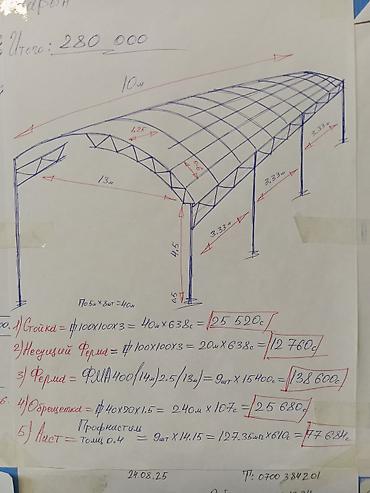 Итого: 280 000
10м
1,25
0,6
13м
3,33м
3,33м
3,33м
4,5
0,5
По 5м х 8шт = 40м
1) Стойка = ⏀100х100х3 = 40м х 638с = 25 520с
2) Несущий Ферма = ⏀100х100х3 = 20м х 638с = 12 760с
3) Ферма = ФМА400(14м)2.5(13м) = 9шт х 15400с = 138 600с
4) Обрешетка = ⏀40х20х1.5 = 240м х 107с = 25 680с
5) Лист = Профнастил толщ 0.4 = 9шт х 14.15 = 127.35мп х 610с = 77 684с
24.08.25
Т: 0700384201